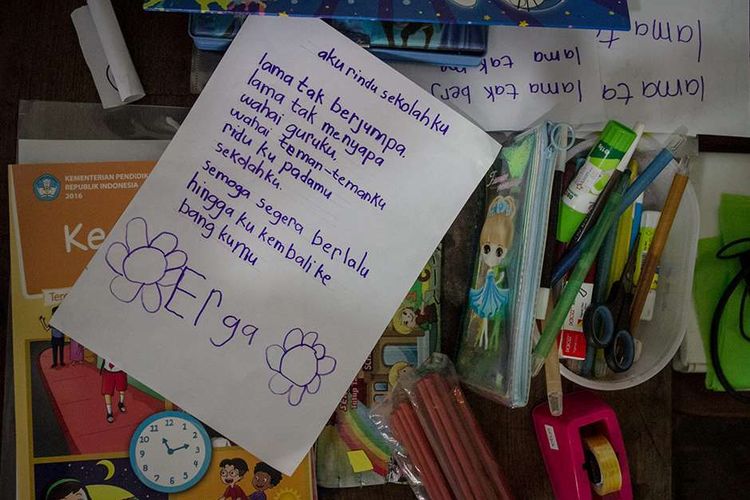 aku rindu sekolahku
lama tak berjumpa.
lama tak menyapa
wahai guruku,
wahai teman-temanku
ridu ku padamu
sekolahku.
semoga segera berlalu
hingga ku kembali ke
bang kumu
Erga
KEMENTERIAN PENDIDIK
REPUBLIK INDONESIA
2016
Ke
lama ta
lama tak
lama ta
lama tak berj